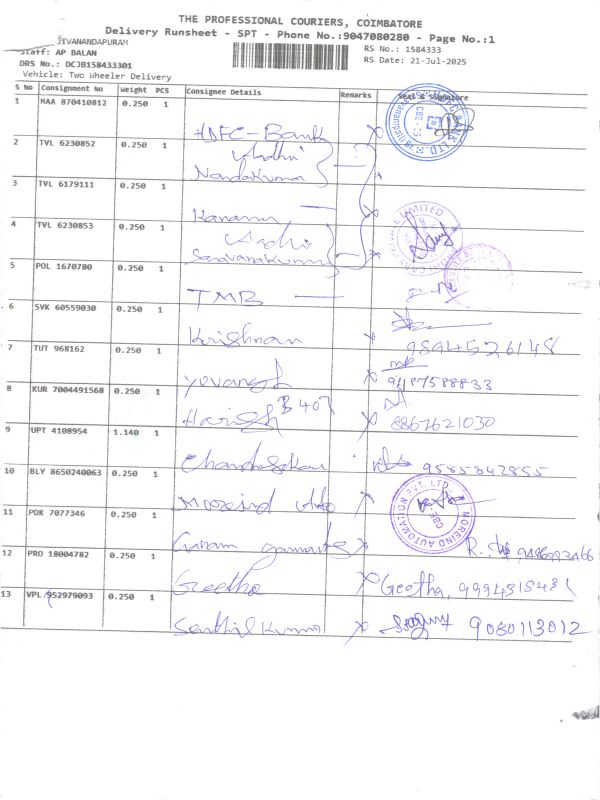 THE PROFESSIONAL COURIERS, COIMBATORE
Delivery Runsheet - SPT - Phone No.:9047080280 - Page No.:1
JIVANANDAPURAM
RS No.: 1584333
Staff: AP BALAN
RS Date: 21-Jul-2025
DRS No.: DCJB158433301
Vehicle: Two Wheeler Delivery
S No Consignment No Weight PCS Consignee Details Remarks Seal & Signature
1 MAA 870410812 0.250 1 HDFC-Bank
2 TVL 6230852 0.250 1 Aadhi Nandakumar
3 TVL 6179111 0.250 1 Kanann
4 TVL 6230853 0.250 1 Aadhi Saravanakumar
5 POL 1670780 0.250 1 TMB
6 SVK 60559030 0.250 1 Krishnan 9894526148
7 TUT 968162 0.250 1 Yuvaraj 9487588833
8 KUR 7004491568 0.250 1 Harish B 407 8867621030
9 UPT 4108954 1.140 1 Chandrasekar 9585842855
10 BLY 8650240063 0.250 1 Moreind Auto
MOREIND AUTOMATION PVT. LTD. CBE
11 PDK 7077346 0.250 1
12 PRO 18004782 0.250 1 Geetha Geetha, 9994315431
13 VPL 952979093 0.250 1 Senthil Kumar 9080113012